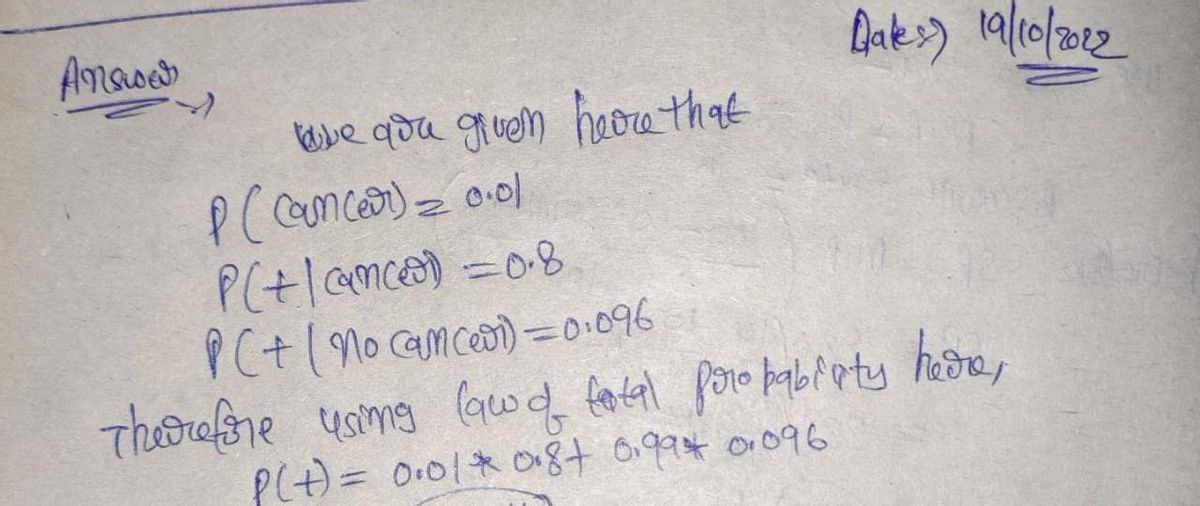 Date:→ 19/10/2022
Answer →
we are given here that
P(cancer) = 0.01
P(+|cancer) = 0.8
P(+|no cancer) = 0.096
Therefore using law of total probability here,
P(+) = 0.01 * 0.8 + 0.99 * 0.096